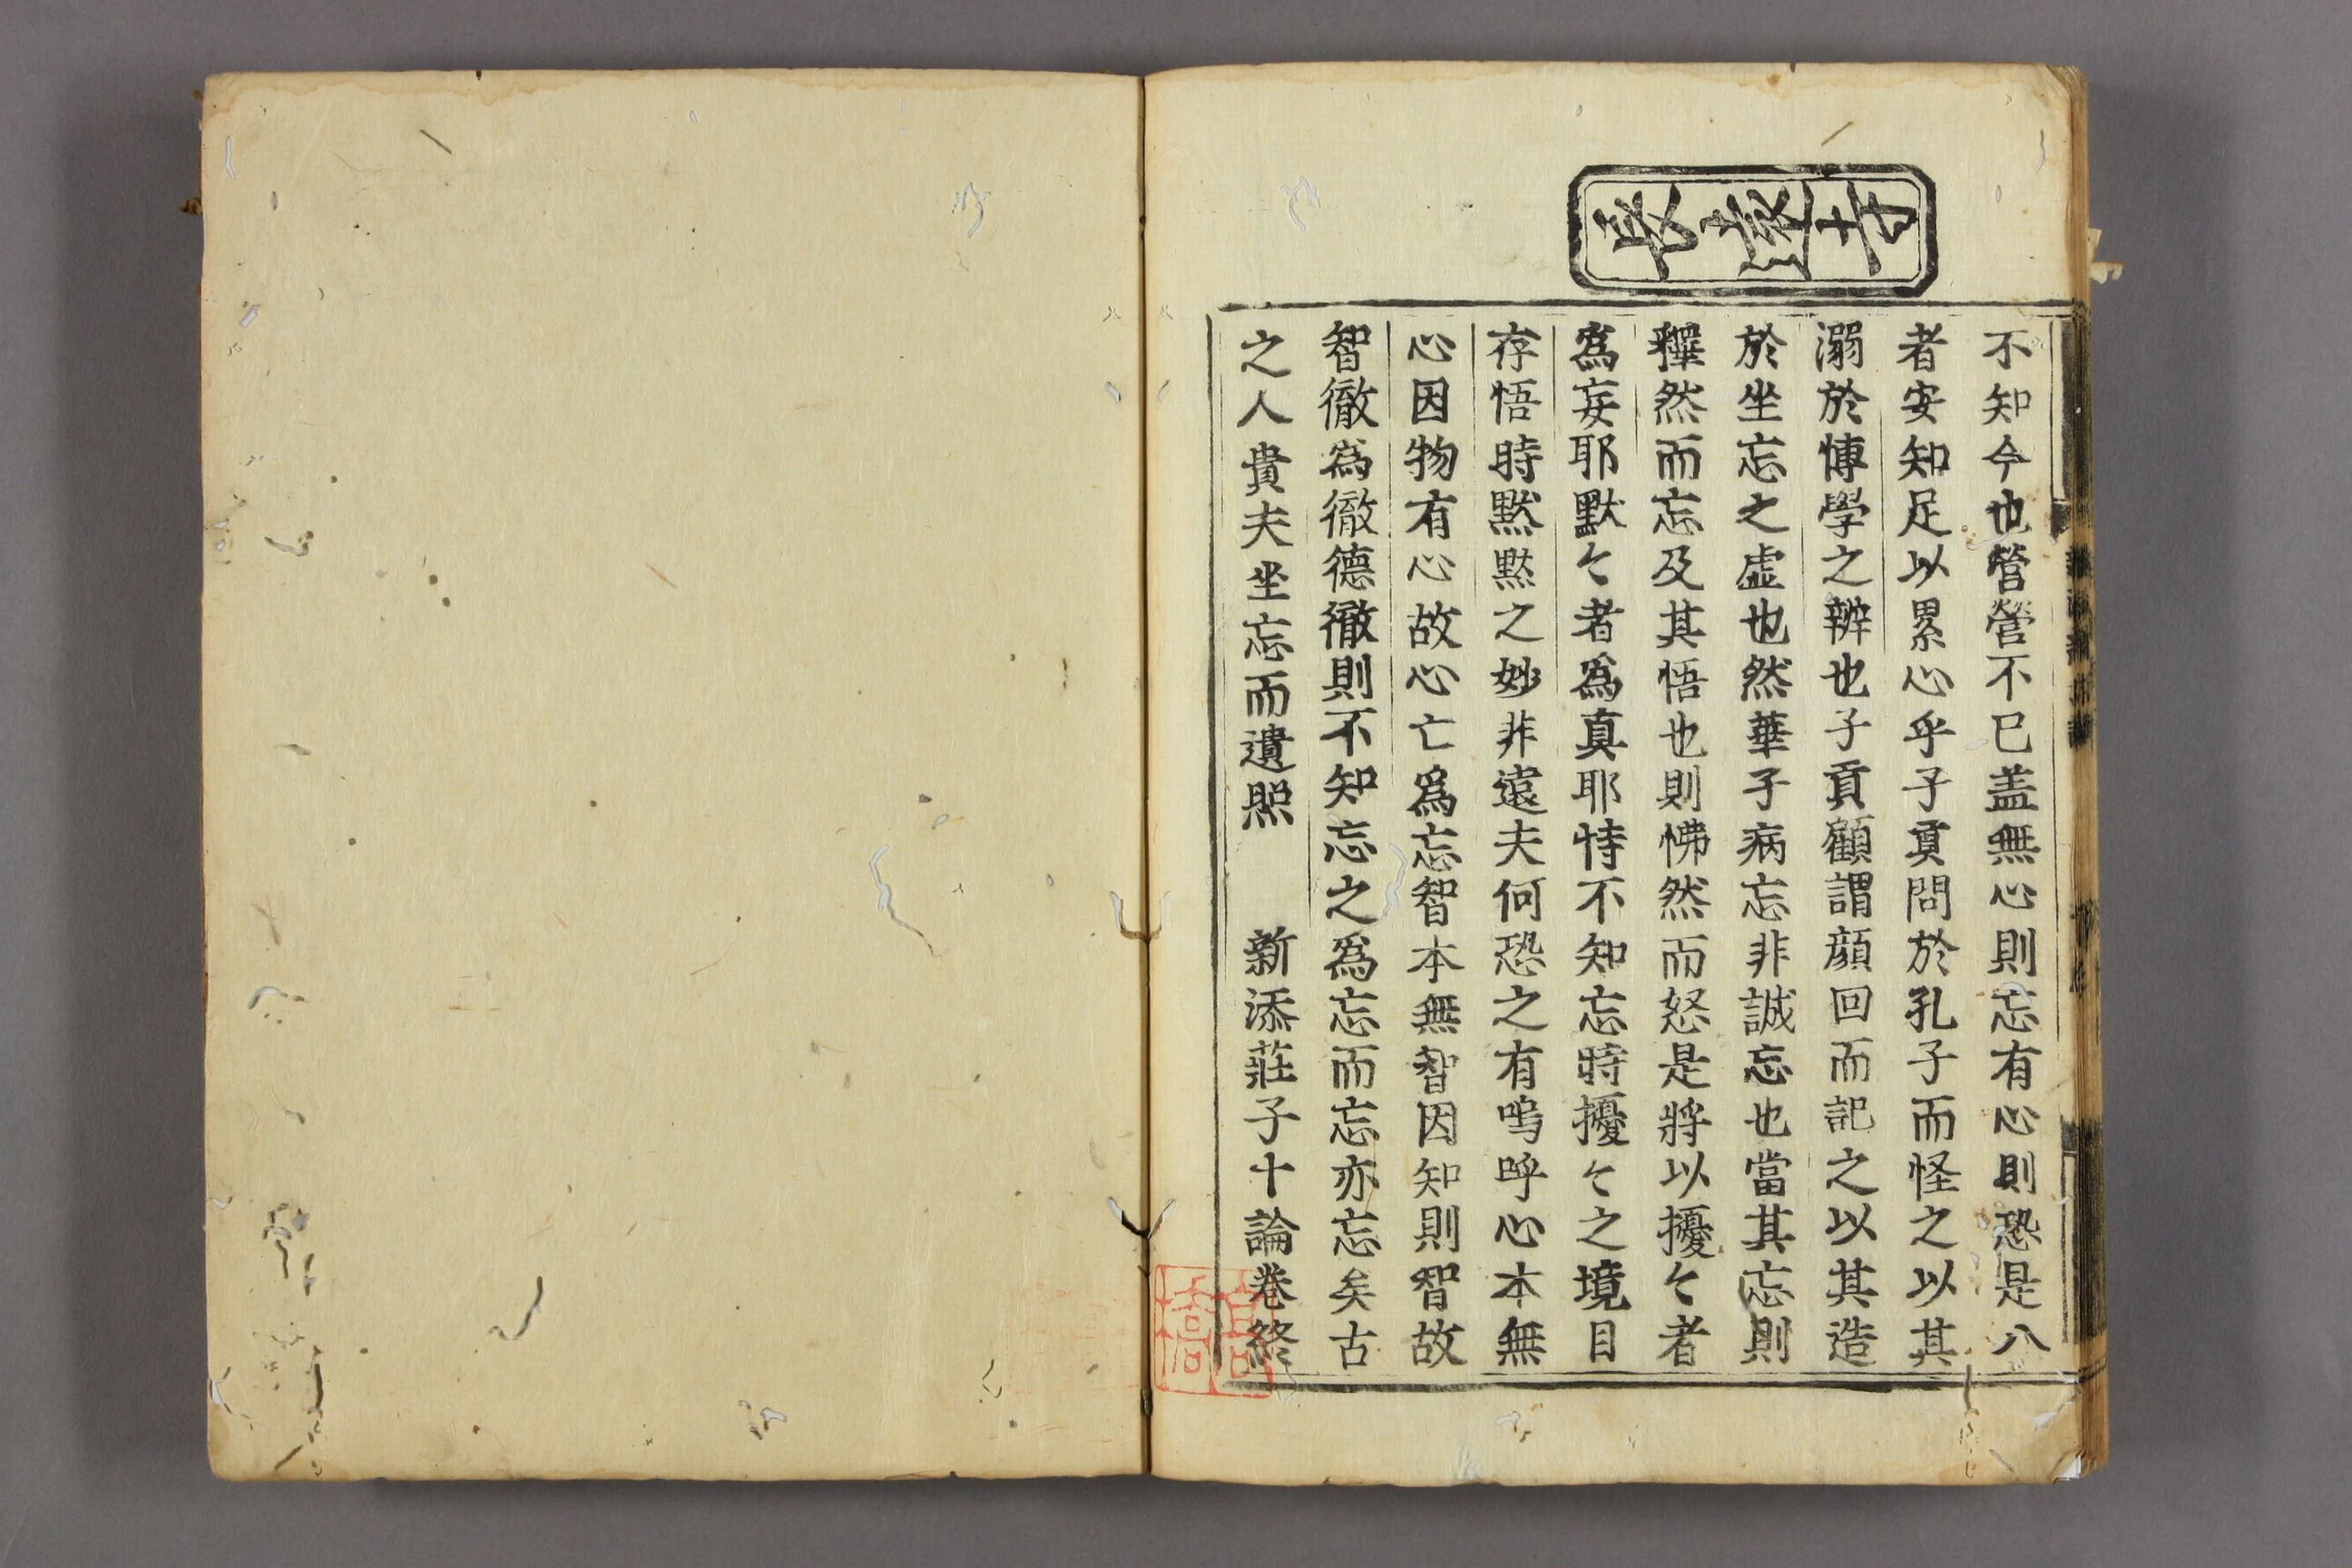 不知今也營營不已盖無心則忘有心則恐是八
者安知足以累心乎子貢問於孔子而怪之以其
溺於愽學之辨也子貢顧謂顔回而記之以其造
於坐忘之虚也然華子病忘非誠忘也當其忘則
釋然而忘及其悟也則怫然而怒是將以擾々者
爲妄耶默々者爲真耶恃不知忘時擾々之境目
存悟時黙黙之妙非遠夫何恐之有嗚呼心本無
心因物有心故心亡爲忘智本無智因知則智故
智徹爲徹德徹則不知忘之爲忘而忘亦忘矣古
之人貴夫坐忘而遺照　新添莊子十論巻終